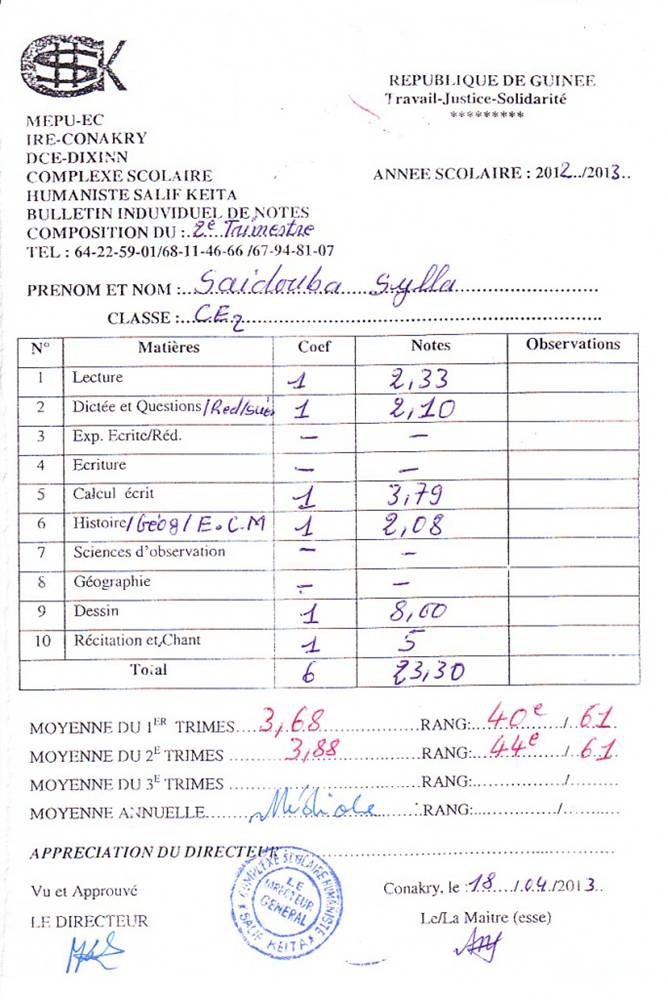 HSK
REPUBLIQUE DE GUINEE
Travail-Justice-Solidarité
*********
MEPU-EC
IRE-CONAKRY
DCE-DIXINN
COMPLEXE SCOLAIRE
HUMANISTE SALIF KEITA
ANNEE SCOLAIRE : 2012../2013..
BULLETIN INDUVIDUEL DE NOTES
COMPOSITION DU :..2e Trimestre
TEL : 64-22-59-01/68-11-46-66 /67-94-81-07
PRENOM ET NOM :...Saidouba Sylla
CLASSE :...CE2
N° Matières Coef Notes Observations
1 Lecture 1 2,33
2 Dictée et Questions/Red/ 1 2,10
3 Exp. Ecrite/Réd. – –
4 Ecriture – –
5 Calcul écrit 1 3,79
6 Histoire/Géog/E.C.M 1 2,08
7 Sciences d'observation – –
8 Géographie – –
9 Dessin 1 8,00
10 Récitation et Chant 1 5
Total 6 23,30
MOYENNE DU 1ER TRIMES....3,68 RANG:..40e../..61
MOYENNE DU 2E TRIMES ....3,88 RANG:..44e../..61
MOYENNE DU 3E TRIMES ........RANG:......../........
MOYENNE ANNUELLE....Médiocre RANG:......../........
APPRECIATION DU DIRECTEUR
Vu et Approuvé
Conakry, le :18..../.04./2013..
LE DIRECTEUR
Le/La Maitre (esse)
COMPLEXE SCOLAIRE HUMANISTE
LE
DIRECTEUR
GENERAL
* SALIF KEITA *